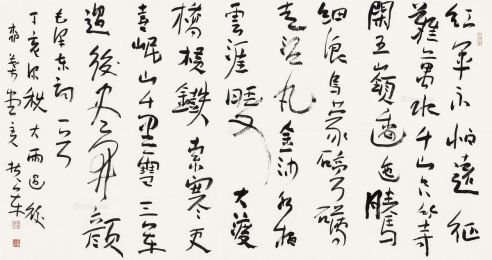 红軍不怕遠征
難萬水千山只等
閑五嶺逶迤騰
细浪烏蒙磅礴
走泥丸金沙水拍
雲涯暖大渡
橋横鐵索寒更
喜岷山千里雪三軍
過後尽開顔
毛澤东詞一首
丁亥深秋大雨過後